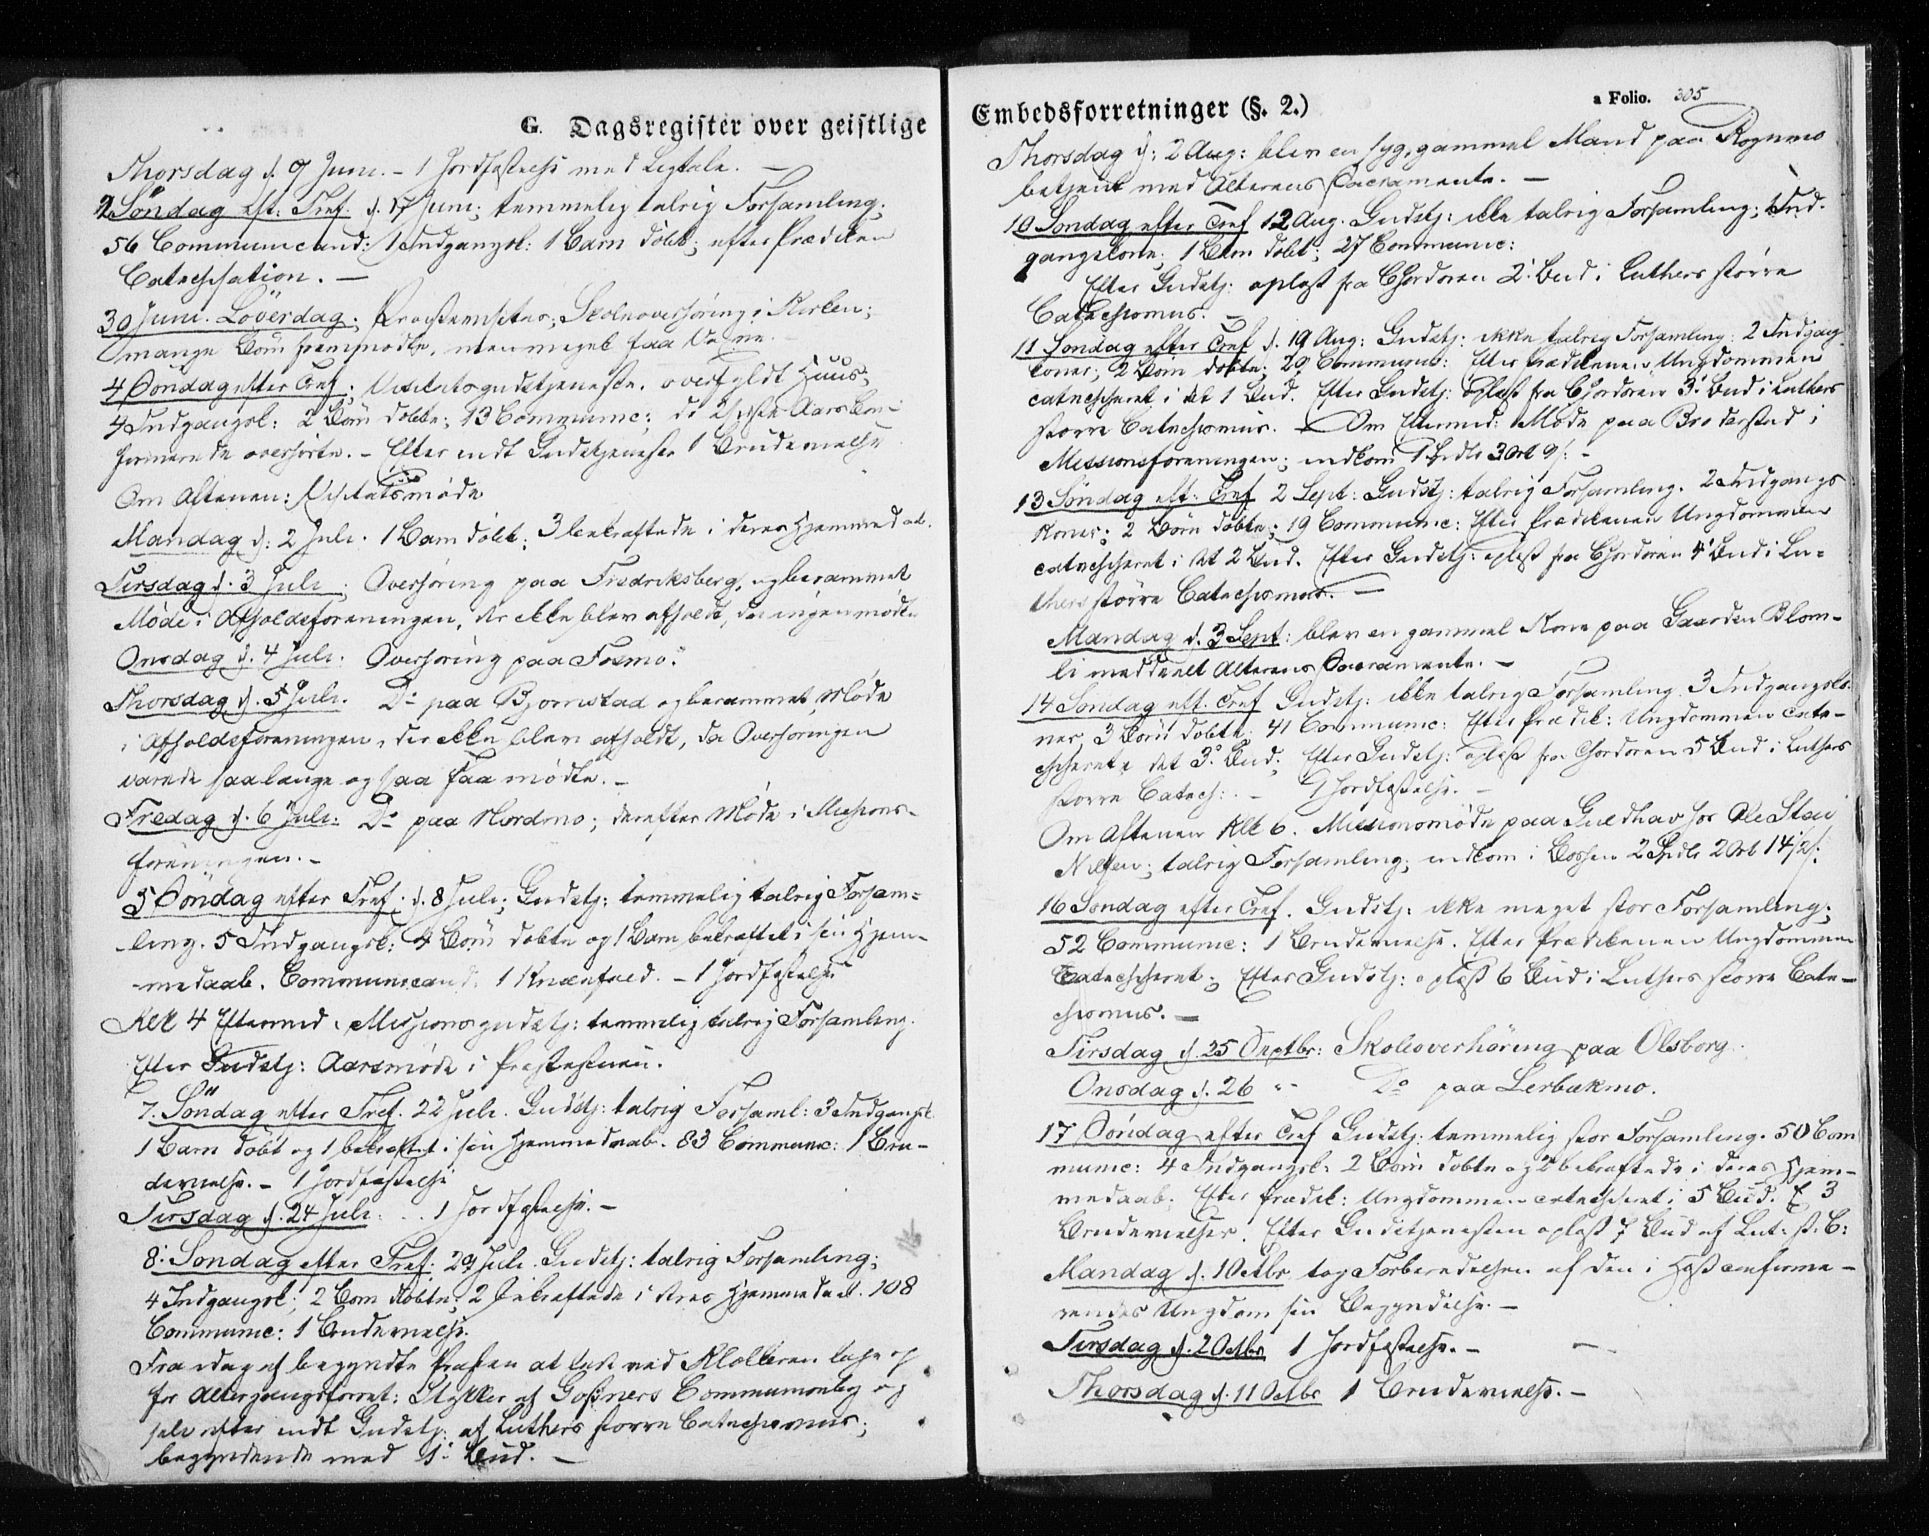 G. Dagsregister over geistlige
Thorsdag d. 7 Juni. – 1 Jordfæstelse med Ligtale. –
2 Søndag eft: Tref. d. 17 Juni; temmelig talrig Forsamling;
56 Communicand: 1 Indgangsk: 1 Barn døbt; efter Prædiken
Catechisation. –
30 Juni. Löverdag. Provstevisitas; Skoleoverhøring i Kirken;
mange Børn fremmødte, men meget faa Voxne. –
4 Søndag efter Tref; Visitatsgudstjeneste. overfyldt Huus;
4 Indgangsk: 2 Børn døbte; 13 Communic; de sidste Aars Con-
firmerede overhørte. – Efter endt Gudstjeneste 1 Brudevielse
Om Aftenen: Visitatsmøde
Mandag d: 2 Juli. 1 Barn døbt; 3 bekræftede i deres Hjemmedaab.
Tirsdag d. 3 Juli; Overhøring paa Fredriksberg, og berammet
Møde i Afholdsforeningen, der ikke blev afholdt, da ingen mødte
Onsdag d. 4 Juli. Overhøring paa Fosmo.
Thorsdag d. 5 Juli. Do paa Bjørnstad og berammet Møde
i Afholdsforeningen, der ikke blev afholdt, da Overhøringen
varede saalænge og saa faa mødte. –
Fredag d. 6 Juli: Do paa Nordmo; derefter Møde i Missions-
foreningen. –
5 Søndag efter Tref. d. 8 Juli; Gudstj: temmelig talrig Forsam=
ling. 5 Indgangsk: 4 Børn døbte og 1 Barn bekræftet i sin Hjem-
medaab. Communicand. 1 Knæfald. – 1 Jordfæstelse
Klk 4 Eftermd. Missionsgudstj: temmelig talrig Forsamling.
Efter Gudstj: Aarsmøde i Præstestuen.
7. Søndag efter Tref. 22 Juli. Gudstj: talrig Forsaml: 3 Indgangsk
1 Barn døbt og 1 bekræftet i sin Hjemmedaab. 83 Communic: 1 Bru-
devielse. – 1 Jordfæstelse
Tirsdag d. 24 Juli. 1 Jordfæstelse. –
8. Søndag efter Tref: 29 Juli. Gudstj: talrig Forsamling;
4 Indgangsk; 2 Børn døbte; 2 bekræftede i deres Hjemmedaab. 108
Communic: 1 Brudevielse.
Fra idag af begyndte Præsten at lade ved Klokkeren læse op
før Altergangsforret: Stykker af Goßners Communionbog og
selv efter endt Gudstj: af Luthers større Catechismus;
begyndende med 1. Bud. –
Embedsforretninger (§. 2.)
a Folio. 305
Thorsdag d: 2 Aug: blev en syg, gammel Mand paa Rognmo
betjent med Alterens Sacramente. –
10 Søndag efter Tref 12 Aug. Gudstj: ikke talrig Forsamling; 1 Ind-
gangskone; 1 Barn døbt; 27 Communic:
Efter Gudstj: oplæst fra Chordøren 2. Bud i Luthers større
Catechismus. –
11 Søndag efter Tref d. 19 Aug: Gudstj: ikke talrig Forsamling: 2 Indgang-
koner; 2 Børn døbte; 29 Communic: Efter Prædikenen Ungdommen
catechiseret i det 1 Bud. Efter Gudstj: oplæst fra Chordøren 3. Bud i Luthers
større Catechismus. – Om Eftermd: Møde paa Broderstad i
Missionsforeningen; indkom 1 Spdlr 3 Ort 9 ß. –
13 Søndag eft. Tref 2 Sept: Gudstj: talrig Forsamling. 2 Indgangs
koner; 2 Børn døbte; 19 Communic: Efter Prædikenen Ungdommen
catechiseret i det 2 Bud. Efter Gudstj: oplæst fra Chordøren 4. Bud i Lu=
thers større Catechismus. –
Mandag d. 3 Sept: blev en gammel Kone paa Gaarden Blom-
li meddeelt Alterens Sacramente. –
14 Søndag eft. Tref Gudstj: ikke talrig Forsamling. 3 Indgangsko-
ner, 3 Børn døbte. 41 Communic: Efter Prædik: Ungdommen cate-
chiseret i det 3. Bud; Efter Gudstj: oplæst fra Chordøren 5 Bud i Luthers
større Catech: – 1 Jordfæstelse. –
Om Aftenen Klk 6. Missionsmøde paa Guldhav hos Ole Steen
Nilsen; talrig Forsamling; indkom i Bøssen 2 Spdlr 2 Ort 14 ß.
16 Søndag efter Tref. Gudstj: ikke meget stor Forsamling;
52 Communic: 1 Brudevielse. Efter Prædikenen Ungdommen
Catechiseret; Efter Gudstj: oplæst 6 Bud i Luthers større Cate-
chismus. –
Tirsdag d. 25 Septbr: Skoleoverhøring paa Olsborg.
Onsdag d. 26 " Do paa Lerbakmo.
17 Søndag efter Tref Gudstj: temmelig stor Forsamling. 50 Com
munic: 4 Indgangsk: 2 Børn døbte og 2 bekræftede i deres Hjem-
medaab. Efter Prædik: Ungdommen catechiseret i 5 Bud. 3
Brudevielser. Efter Gudstjenesten oplæst 7 Bud af Lut. st. C:
Mandag d. 1 Octbr tog Forberedelsen af den i Høst confirme-
rendes Ungdom sin Begyndelse. –
Tirsdag d. 2 Octbr 1 Jordfæstelse. –
Thorsdag d. 11 Octbr 1 Brudevielse. –